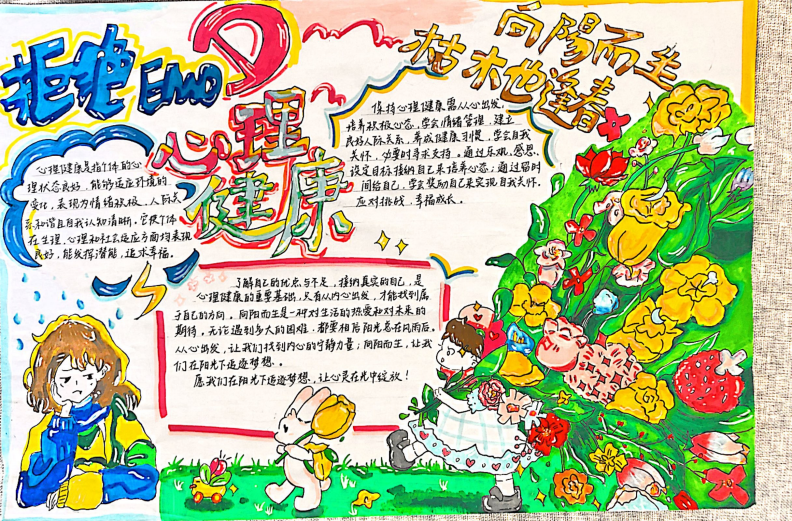 拒绝EMO
心理
健康
向陽而生
枯木也逢春
心理健康是指个体的心
理状态良好，能够适应环境的
变化，表现为情绪积极、人际关
系和谐且自我认知清晰。它使个体
在生理、心理和社会适应方面均表现
良好，能发挥潜能，追求幸福。
保持心理健康需从心出发，
培养积极心态，学会情绪管理，建立
良好人际关系，养成健康习惯，学会自我
关怀，必要时寻求支持。通过乐观、感恩、
设定目标接纳自己来培养心态；通过留时
间给自己，学会奖励自己来实现自我关怀，
应对挑战，幸福成长。
了解自己的优点与不足，接纳真实的自己，是
心理健康的重要基础，只有从内心出发，才能找到属
于自己的方向。向阳而生是一种对生活的热爱和对未来的
期待，无论遇到多大的困难，都要相信阳光总在风雨后。
从心出发，让我们找到内心的宁静力量；向阳而生，让我
们在阳光下追逐梦想。
愿我们在阳光下追逐梦想，让心灵在光中绽放！